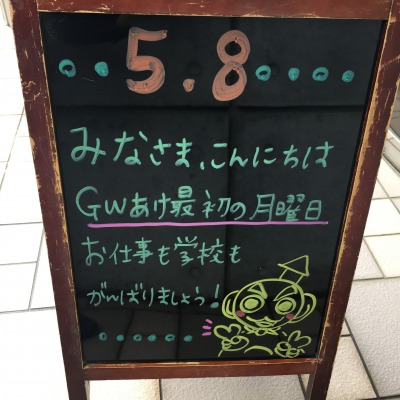 5.8
みなさま、こんにちは
GWあけ最初の月曜日
お仕事も学校も
がんばりましょう!